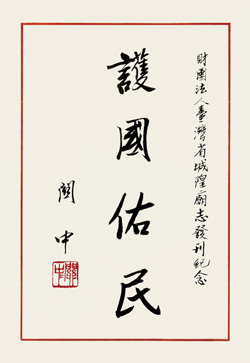 財團法人臺灣省城隍廟志發刊紀念
護國佑民
關中
關中